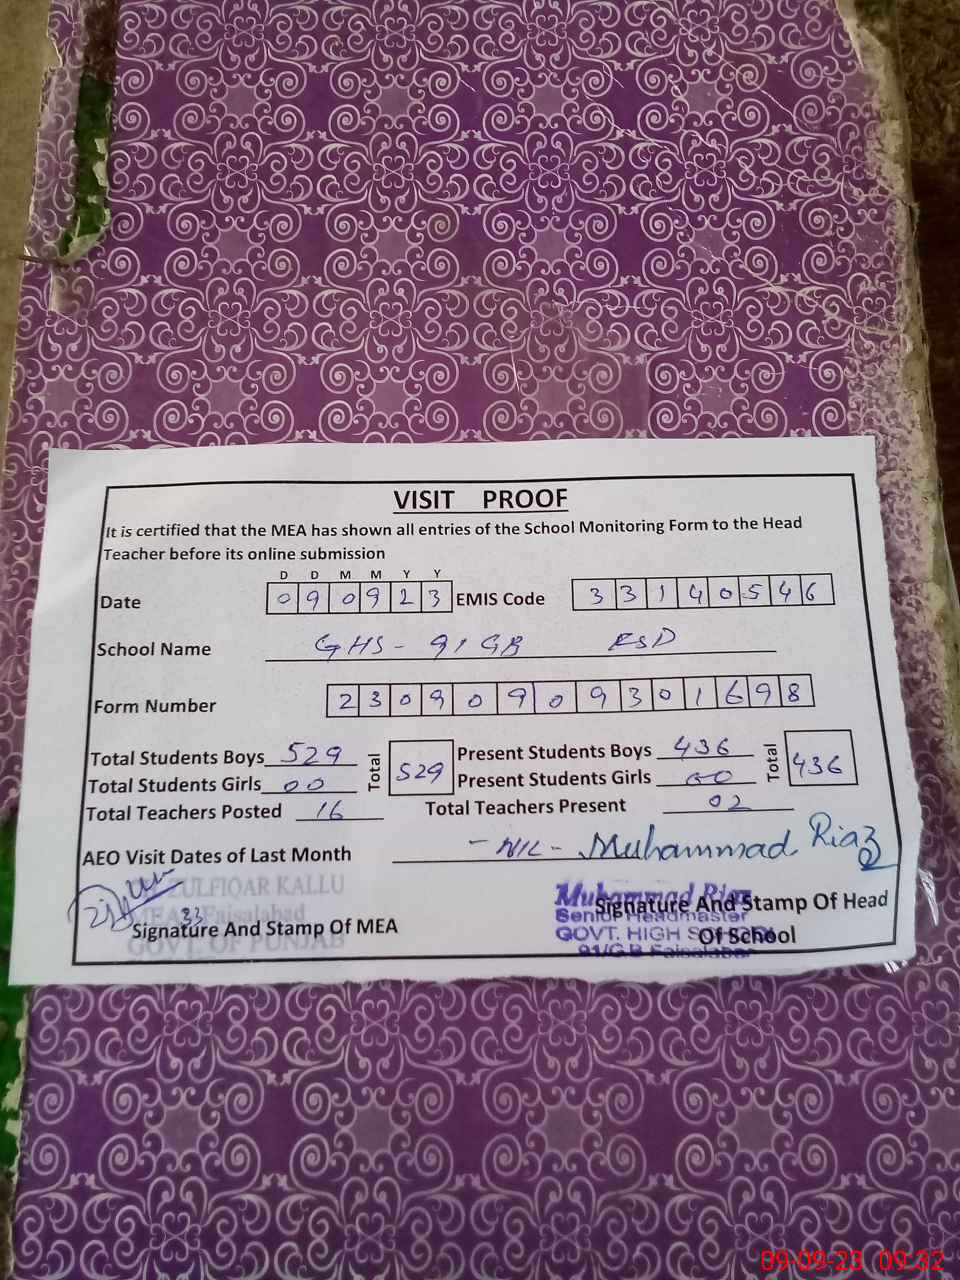 VISIT PROOF
It is certified that the MEA has shown all entries of the School Monitoring Form to the Head
Teacher before its online submission
D D M M Y Y
Date 0 9 0 9 2 3 EMIS Code 3 3 1 4 0 5 4 6
School Name GHS - 91 GB FSD
Form Number 2 3 0 9 0 9 0 9 3 0 1 6 9 8
Total Students Boys 529 Total 529 Present Students Boys 436 Total 436
Total Students Girls 00 Present Students Girls 00
Total Teachers Posted 16 Total Teachers Present 02
AEO Visit Dates of Last Month - NIL - Muhammad Riaz
ZULFIQAR KALLU
MEA Faisalabad
33
Signature And Stamp Of MEA
GOVT. OF PUNJAB
Muhammad Riaz
Signature And Stamp Of Head
Senior Headmaster
GOVT. HIGH SCHOOL
Of School
91/G.B Faisalabad
09-09-23 09:32